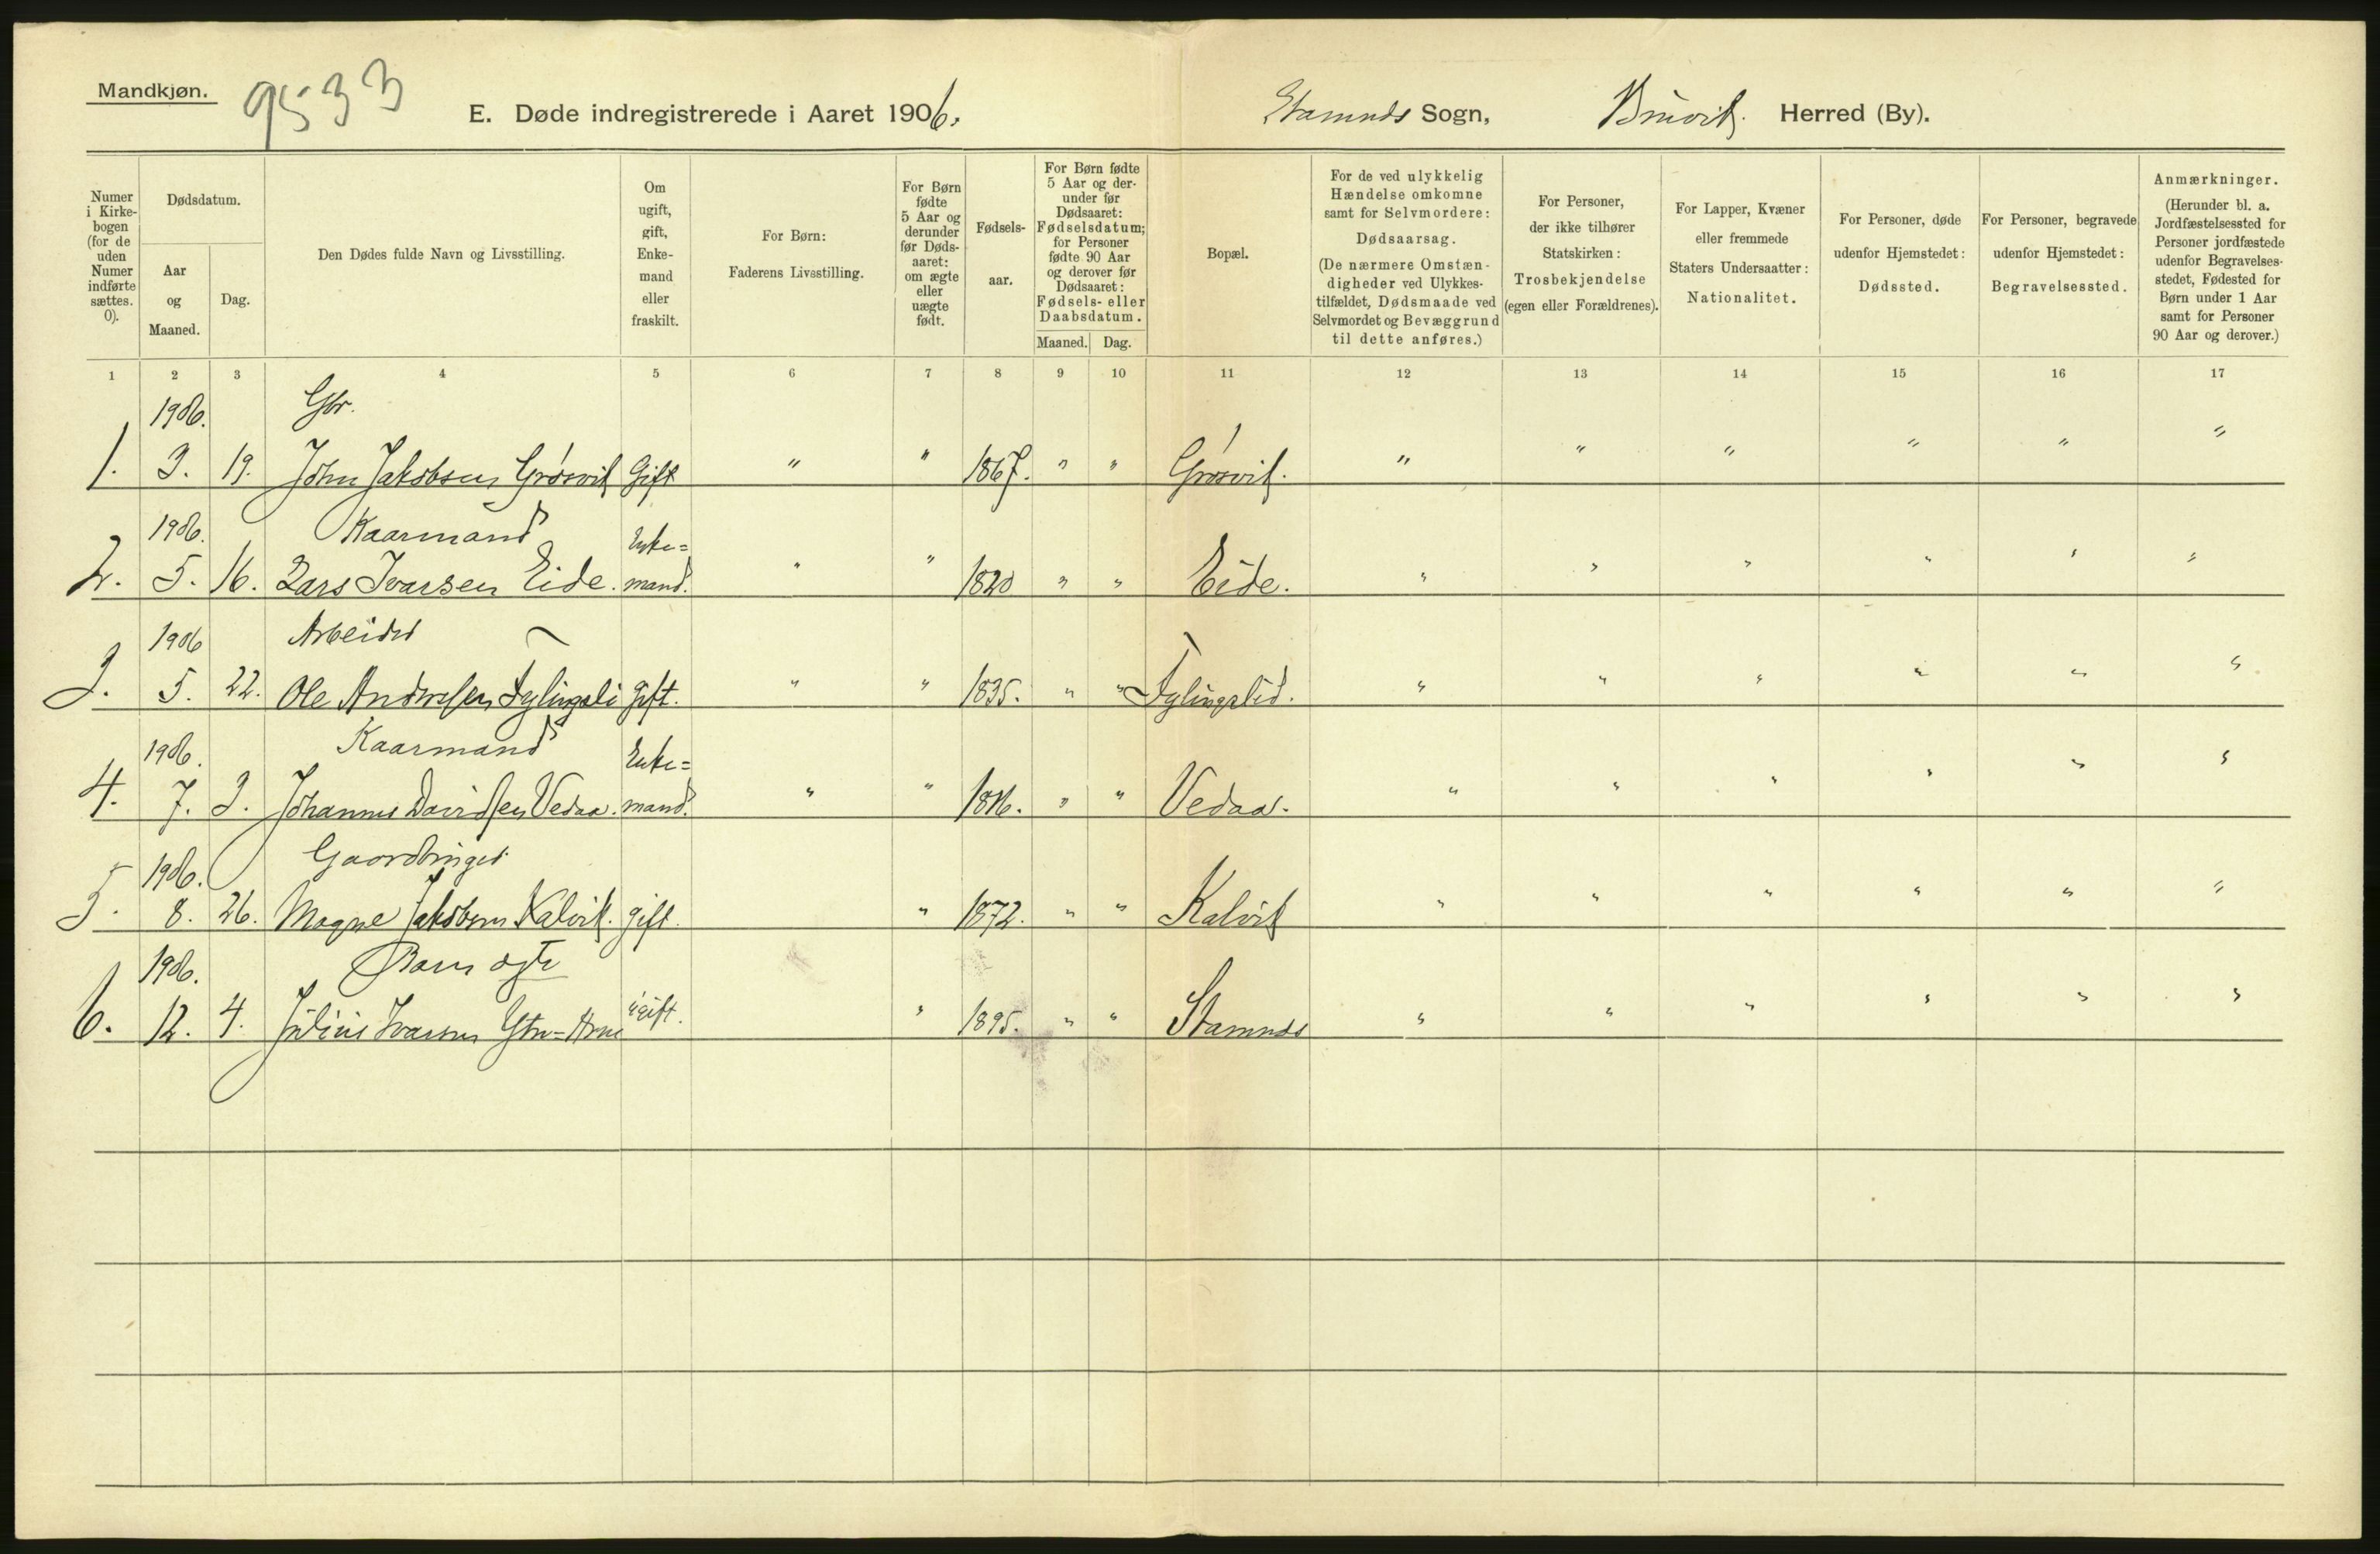 Mandkjøn.
9533
E. Døde indregistrerede i Aaret 1906.
Stamnds Sogn, Bruvik. Herred (By).
Numer i Kirke-bogen (for de uden Numer indførte sættes. 0).
Dødsdatum.
Aar og Maaned.
Dag.
Den Dødes fulde Navn og Livsstilling.
Om ugift, gift, Enke-mand eller fraskilt.
For Børn: Faderens Livsstilling.
For Børn fødte 5 Aar og derunder før Døds-aaret: om ægte eller uægte født.
Fødsels-aar.
For Børn fødte 5 Aar og der-under før Dødsaaret: Fødselsdatum; for Personer fødte 90 Aar og derover før Dødsaaret: Fødsels- eller Daabsdatum.
Maaned. Dag.
Bopæl.
For de ved ulykkelig Hændelse omkomne samt for Selvmordere: Dødsaarsag. (De nærmere Omstæn-digheder ved Ulykkes-tilfældet, Dødsmaade ved Selvmordet og Bevæggrund til dette anføres.)
For Personer, der ikke tilhører Statskirken: Trosbekjendelse (egen eller Forældrenes).
For Lapper, Kvæner eller fremmede Staters Undersaatter: Nationalitet.
For Personer, døde udenfor Hjemstedet: Dødssted.
For Personer, begravede udenfor Hjemstedet: Begravelsessted.
Anmærkninger. (Herunder bl. a. Jordfæstelsessted for Personer jordfæstede udenfor Begravelses-stedet, Fødested for Børn under 1 Aar samt for Personer 90 Aar og derover.)
1 2 3 4 5 6 7 8 9 10 11 12 13 14 15 16 17
1906. Gbr.
1. 3. 19. John Jakobsen Grøsvik Gift " " 1867. " " Grøsvik. " " " " " "
1906. Kaarmand Enke=
2. 5. 16. Lars Ivarsen Eide. mand. " " 1820 " " Eide. " " " " " "
1906 Arbeider
3. 5. 22. Ole Andersen Fylingsli gift. " " 1835. " " Fylingslid. " " " " " "
1906. Kaarmand Enke=
4. 7. 3. Johannes Davidsen Vedaa. mand. " " 1816. " " Vedaa. " " " " " "
1906. Gaardbruger
5. 8. 26. Magne Jakobsen Kalvik. gift. " 1872. " " Kalvik " " " " " "
1906. Barn ægte
6. 12. 4. Julius Ivarsen ugift. " 1895. " " Stamnds " " " " " "